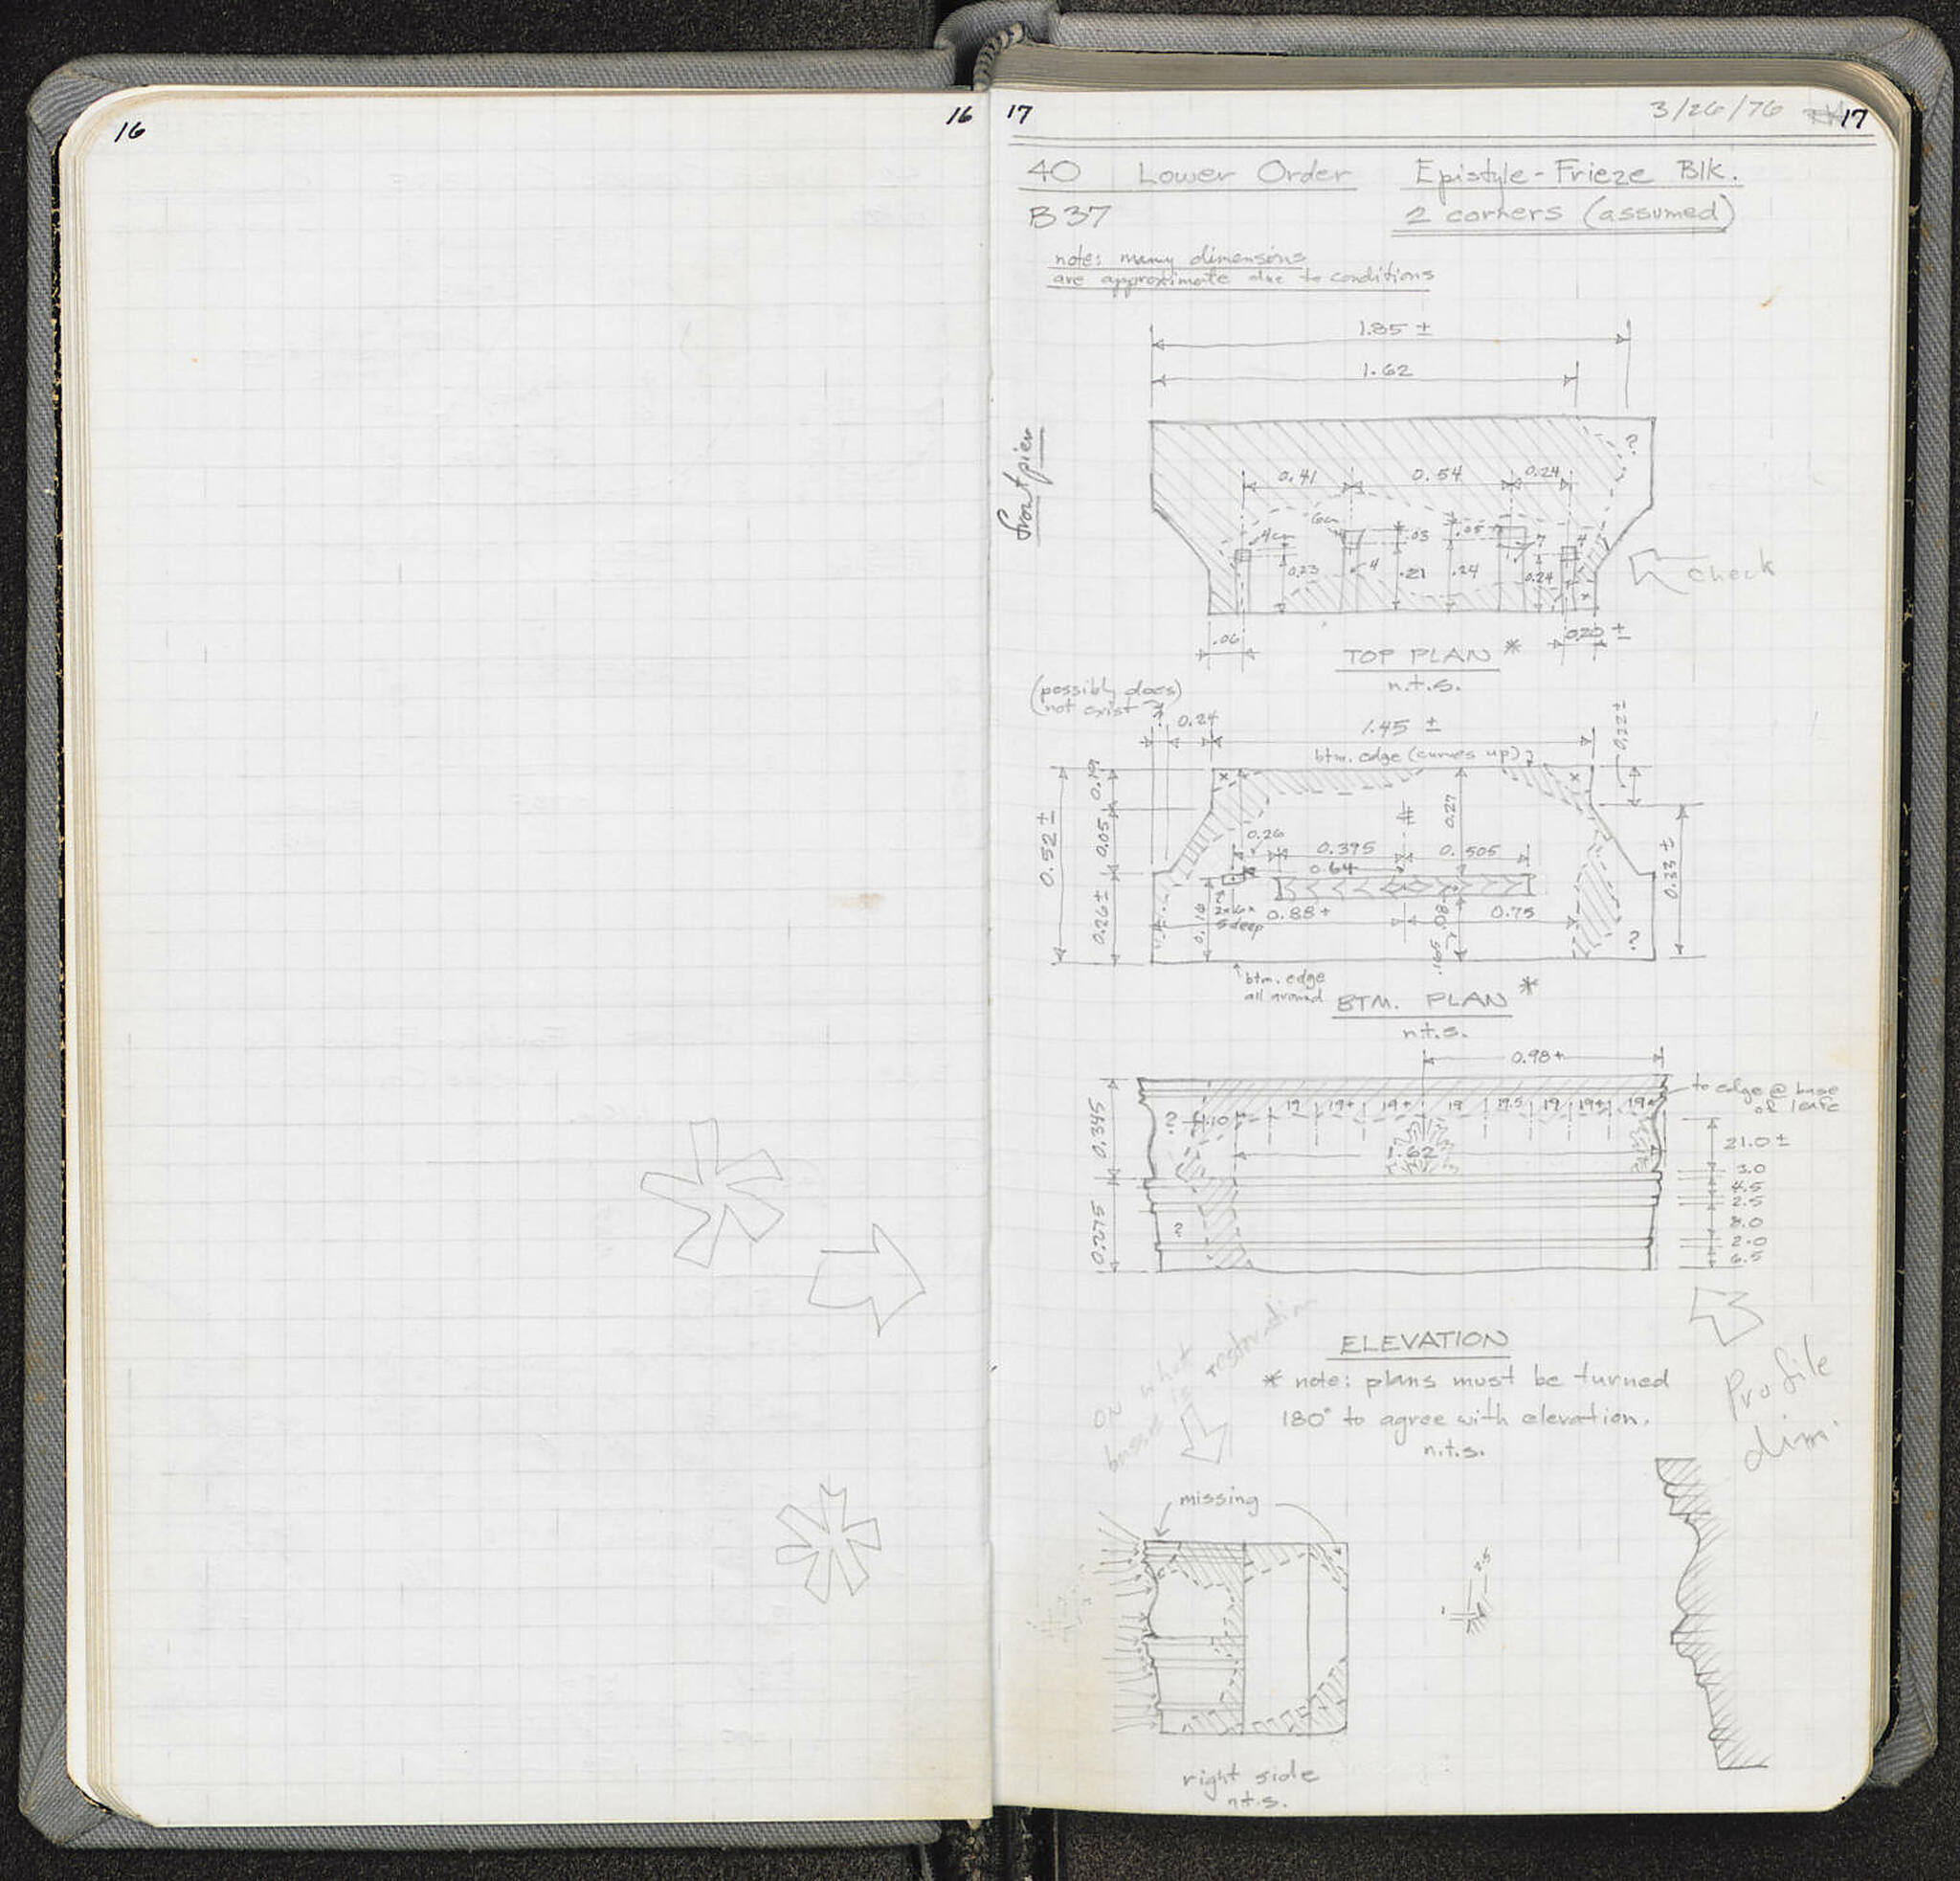 16
16
17
3/26/76
17
40 Lower Order Epistyle-Frieze Blk.
B37 2 corners (assumed)
note: many dimensions
are approximate due to conditions
1.85 ±
1.62
front pier
?
0.41 0.54 0.24
6cm
4cm .03 .05 7 4
0.23 4 .21 .24 0.24
x
check
.06 0.20 ±
TOP PLAN *
n.t.s.
(possibly does
not exist)
? 0.24 1.45 ± 0.22 ±
btm. edge (curves up)
x x
0.52 ±
0.19
0.05
0.26 ±
0.27
0.26
0.395 0.505
0.64
0.33 ±
0.16
2x6x
5 deep
0.88 + .08 0.75
.165
?
btm. edge
all around
BTM. PLAN *
n.t.s.
0.98+
to edge @ base
of leafs
0.345
? .10 19 19+ 19+ 19 19.5 19 19+ 19+
1.62
21.0 ±
3.0
4.5
2.5
8.0
2.0
6.5
0.275
?
ELEVATION
* note: plans must be turned
180° to agree with elevation.
n.t.s.
On what
basis is restor. dim
Profile
dim.
missing
2.5
right side
n.t.s.